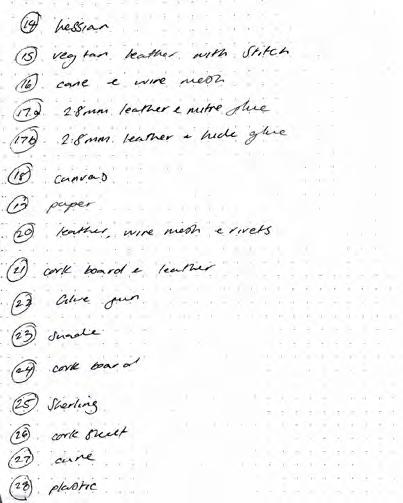 14 hessian
15 veg tan leather with Stitch
16 cane & wire mesh
17a 2.8mm leather & mitre glue
17b 2.8mm leather & hide glue
18 canvas
19 paper
20 leather, wire mesh & rivets
21 cork board & leather
22 Glue gun
23 Suade
24 cork board
25 Sherling
26 cork Sheet
27 cane
28 plastic